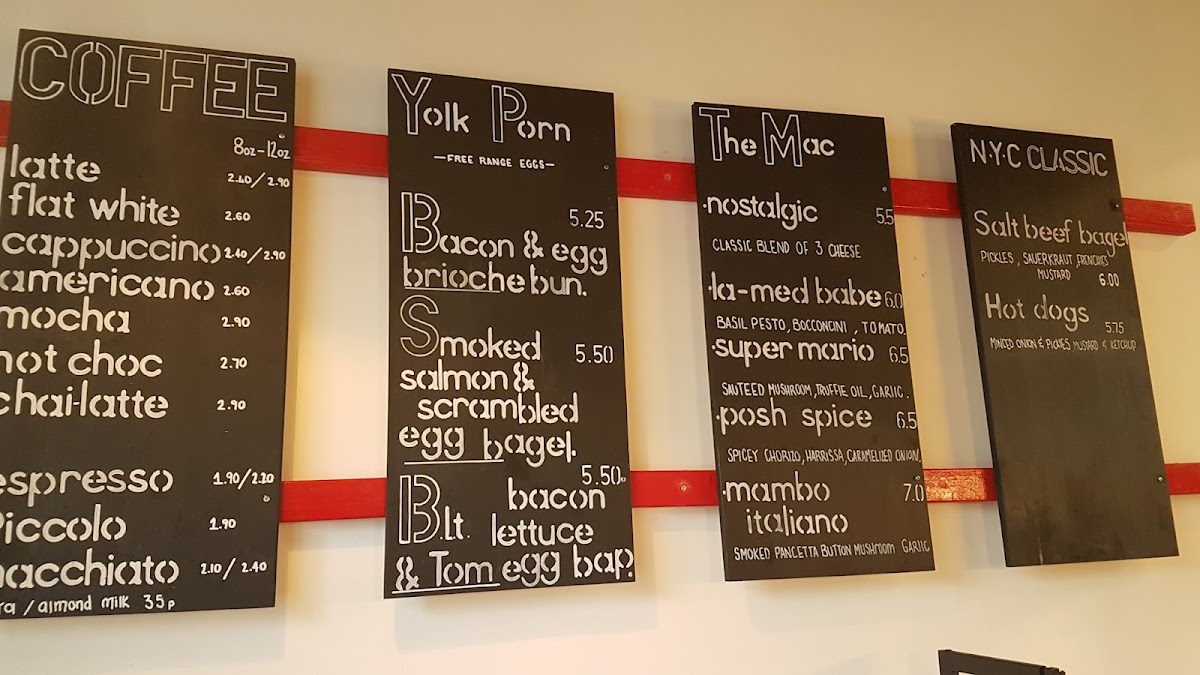 COFFEE
8oz-12oz
latte 2.40/2.90
flat white 2.60
cappuccino 2.40/2.90
americano 2.60
mocha 2.90
hot choc 2.70
chai-latte 2.90
espresso 1.90/2.20
Piccolo 1.90
macchiato 2.10/2.40
/almond milk 35p
Yolk Porn
—FREE RANGE EGGS—
5.25
Bacon & egg
brioche bun.
Smoked 5.50
salmon &
scrambled
egg bagel.
5.50
bacon
B.l.t. lettuce
& Tom egg bap.
The Mac
·nostalgic 5.5
CLASSIC BLEND OF 3 CHEESE
·la-med babe 6.0
BASIL PESTO, BOCCONCINI, TOMATO.
·super mario 6.5
SAUTEED MUSHROOM, TRUFFIE OIL, GARLIC.
·posh spice 6.5
SPICEY CHORIZO, HARRISSA, CARAMELIZED ONION.
·mambo 7.0
italiano
SMOKED PANCETTA BUTTON MUSHROOM GARLIC
N·Y·C CLASSIC
Salt beef bagel
PICKLES, SAUERKRAUT, FRENCHIES
MUSTARD 6.00
Hot dogs 5.75
MINCED ONION & PICKLES MUSTARD & KETCHUP